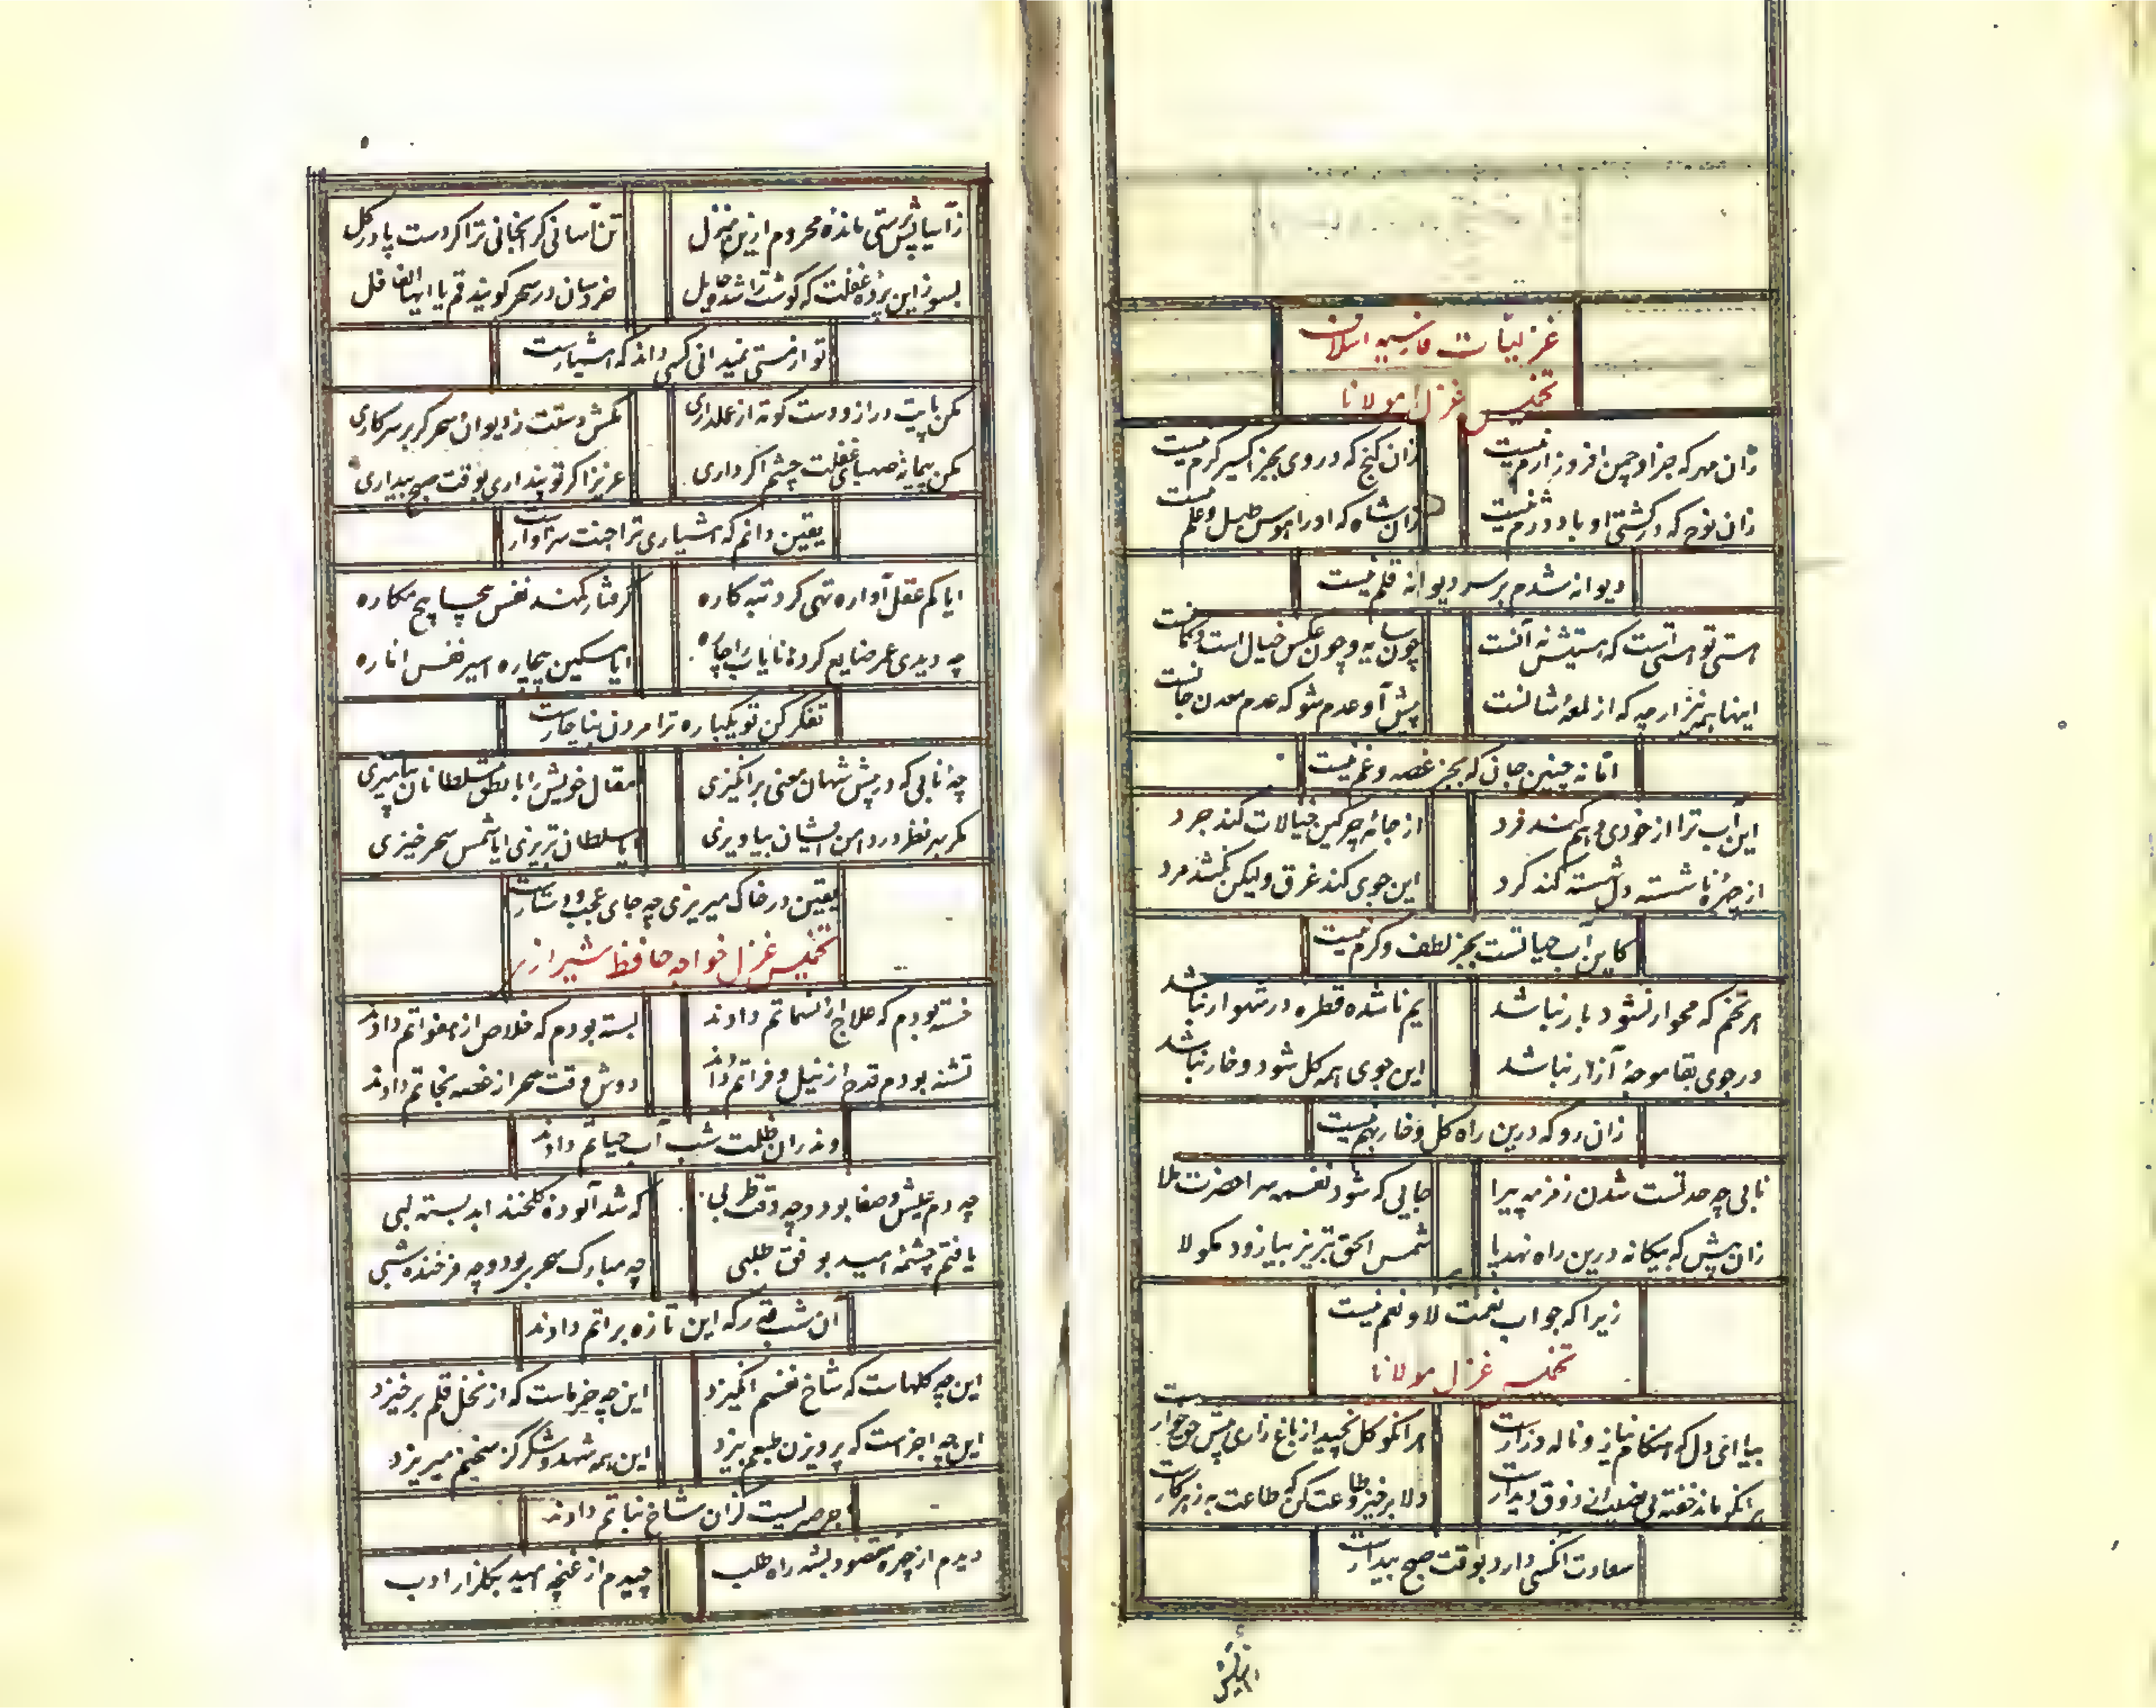 غزلیات فارسیه
تخمیس غزل مولانا
زان مهر که جز او چمن افروز ارم نیست
زان گنج که در وی بجز اکسیر کرم نیست
زان نوح که در کشتی او باد دژم نیست
زان شاه که او را هوس طبل و علم نیست
دیوانه شدم بر سر دیوانه قلم نیست
هستی تو هستیست که هستیش نه آنست
چون سایه و چون عکس خیال است
اینها همه نیز ارچه که از لمعهٔ شانست
پیش آ و عدم شو که عدم معدن جانست
امّا نه چنین جان که بجز غصه و غم نیست
این آب ترا از خودی و هم کند فرد
از جامهٔ چرکین خیالات کند جرد
از چهرهٔ ناشسته دل شسته کند کرد
این جوی کند غرق ولیکن نکشد مرد
کاین آب حیاتست بجز لطف و کرم نیست
هر تخم که محو ار نشود بار نباشد
یم ناشده قطره در شهوار نباشد
در جوی بقا موجهٔ آزار نباشد
این جوی همه کل شود و خار نباشد
زان رو که درین راه کل و خار بهم نیست
نابی چه حد تست شدن زمزمه پیرا
جایی که شود نغمه سرا حضرت ملا
زان پیش که بیکانه درین راه نهد پا
شمس الحق تبریز بیا زود مکو لا
زیرا که جواب نعمت لا و نعم نیست
تخمیس غزل مولانا
بیا ای دل که هنکام نیاز و ناله و زاریست
هر انکو کل نچید از باغ زاری پیش حق خواریست
هر انکو ماند خفته بی نصیب از ذوق دیداریست
دلا برخیز و طاعت کن که طاعت به ز هر کاریست
سعادت آنکسی دارد بوقت صبح بیداریست
زآسایش پرستی مانده محروم ازین منزل
تن آسانی کرانجانی ترا کردست پا در کل
بسوز این پردهٔ غفلت که کوشت را شد حایل
خروسان در سحر کویند قم یا ایها الغافل
تو از مستی نمیدانی کسی داند که هشیارست
مکن پایت دراز و دست کوته از عملداری
مکش دستت ز دیوان سحر کر بر سر کاری
مکن پیمانهٔ صهبای غفلت چشم اکر داری
عزیزا کر تو پنداری بوقت صبح بیداری
یقین دانم که هشیاری ترا جنت سزاوارست
ایا کم عقل آواره تهی کرد تبه کاره
کرفتار کمند نفس پیچاپیچ مکاره
چه دیدی عمر ضایع کردهٔ نایاب را چاره
ایا مسکین بیچاره اسیر نفس اماره
تفکر کن تو یکباره ترا مردن بناچارست
چهٔ نابی که در پیش شهان معنی برانکیزی
مقال خویش را با نطق سلطانان بیامیزی
مکر بهر نظر در دامن ایشان بیاویزی
ایا سلطان تبریزی ایا شمس سحر خیزی
یقین در خاک میریزی چه جای عجب و دستارست
تخمیس غزل خواجه حافظ شیرازی
خسته بودم که علاج از نسماتم دادند
بسته بودم که خلاص از هفواتم دادند
تشنه بودم قدح از نیل و فراتم دادند
دوش وقت سحر از غصه نجاتم دادند
وندران ظلمت شب آب حیاتم دادند
چه دم عیش و صفا بود و چه وقت طربی
که شد آلودهٔ کلخند ابد بسته لبی
یافتم چشمهٔ امید بوفق طلبی
چه مبارک سحری بود و چه فرخنده شبی
آن شب قدر که این تازه براتم دادند
این چه کلهاست که شاخ نفسم انکیزد
این چه خرماست که از نخل قلم برخیزد
این چه اجزاست که پرویزن طبعم بیزد
این همه شهد و شکر کز سخنم میریزد
اجر صبریست کزان شاخ نباتم دادند
دیدم از چهرهٔ مقصود بشه راه طلب
چیدم از غنچهٔ امید بکلزار ادب